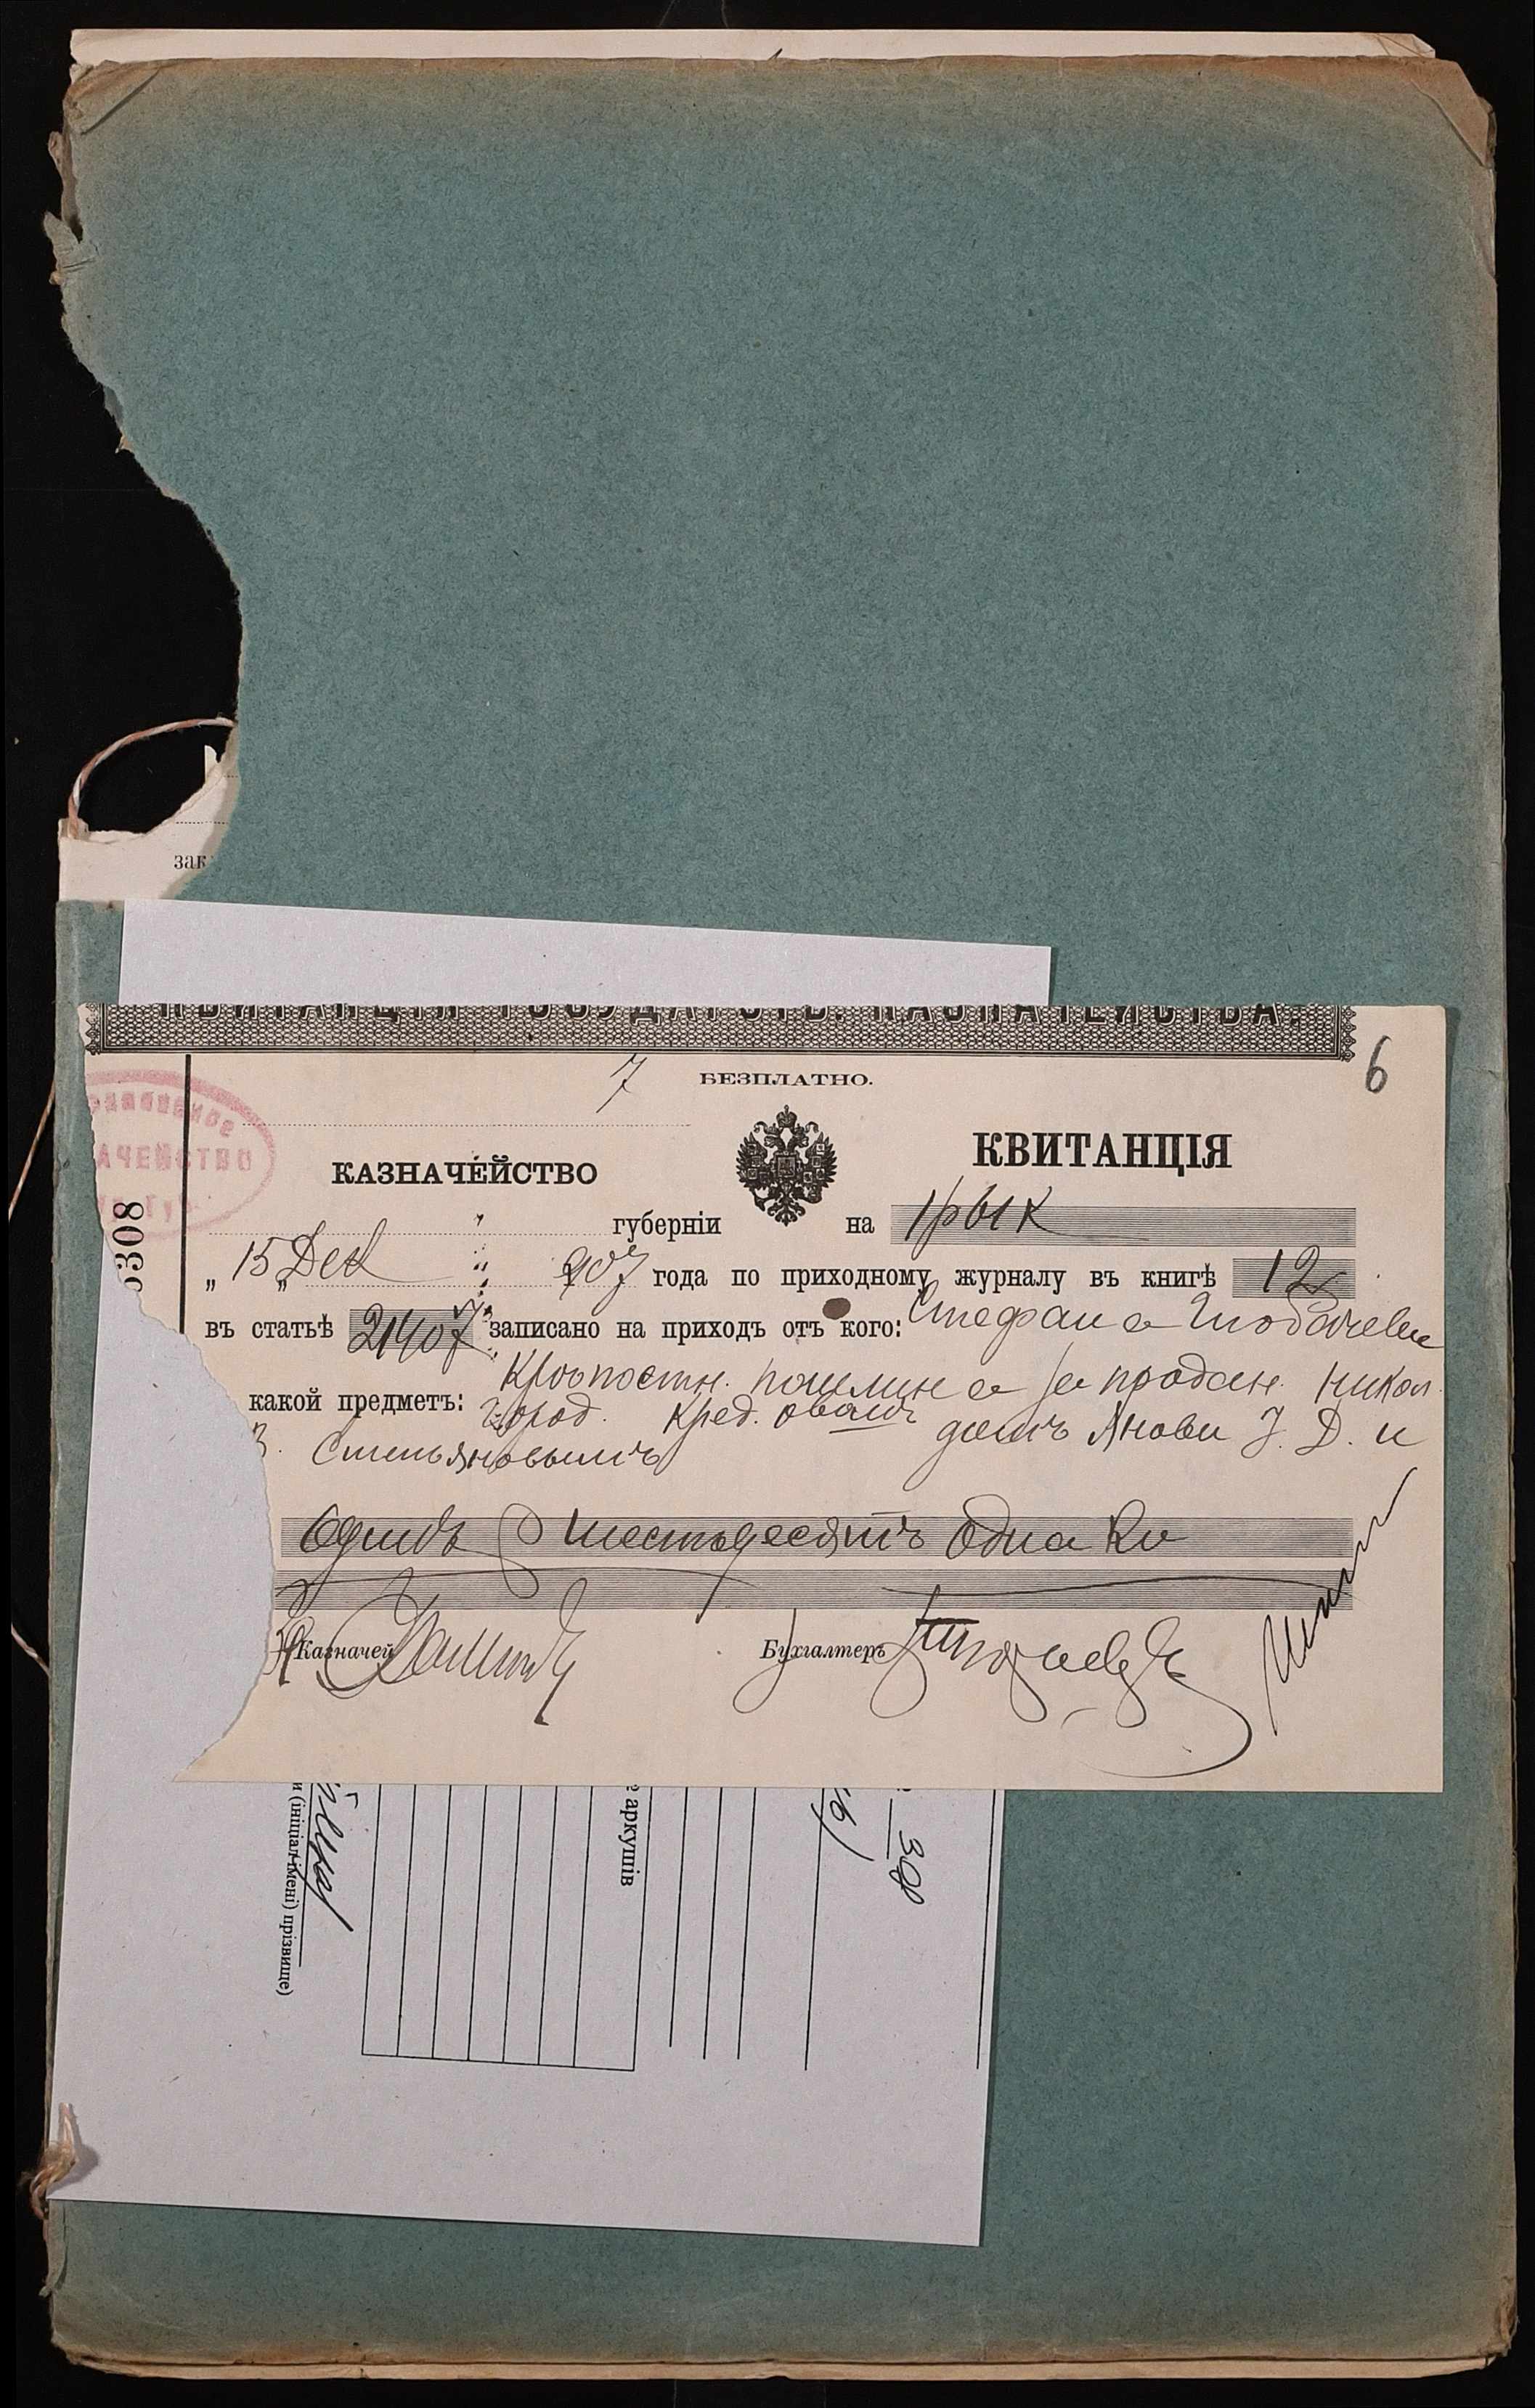 зак
КВИТАНЦІЯ ГОСУДАРСТВ. КАЗНАЧЕЙСТВА.
6
7 БЕЗПЛАТНО.
АЧЕЙСТВО
КАЗНАЧЕЙСТВО
КВИТАНЦІЯ
губерніи на 1р61к
308
„ 15 „ Дек 907 года по приходному журналу въ книгѣ 12
въ статьѣ 21407 записано на приходъ отъ кого: Стефана
какой предметъ: Крѣпостн. пошлина за продан. Никол.
Город. Кред. Общ домъ Янови З. Д. и
Степьяновымъ
Одинъ р шестьдесятъ одна ко
Казначей
Бухгалтеръ
и (ініціал імені) прізвище)
аркушів